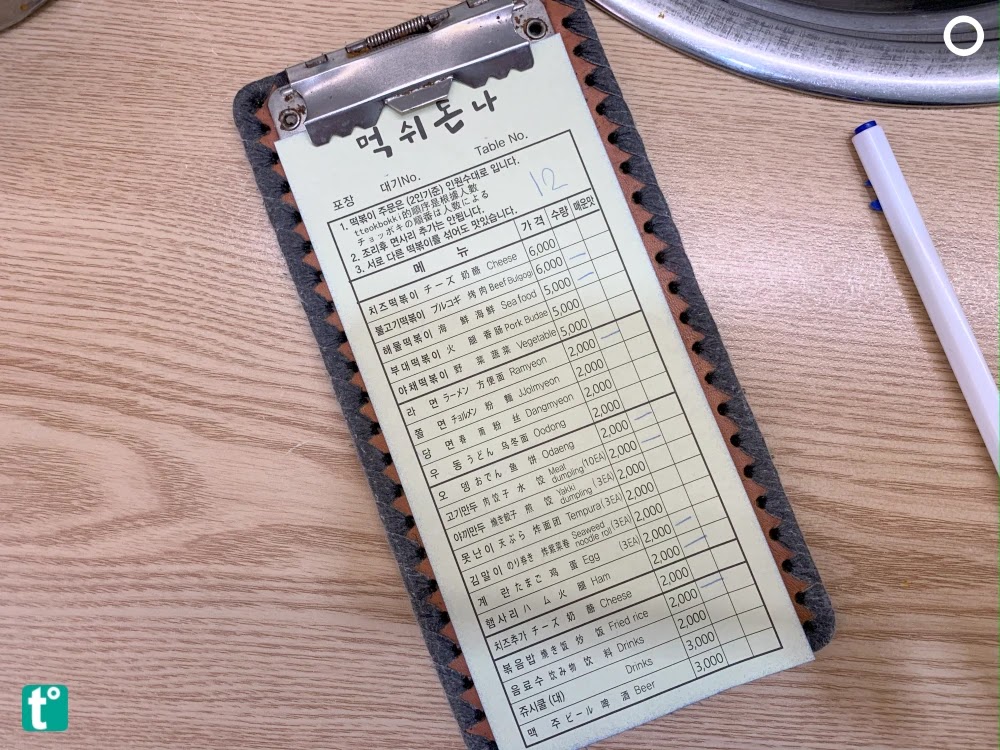 먹쉬돈나
포장 대기No. Table No.
12
1. 떡볶이 주문은 (2인기준) 인원수대로 입니다.
tteokbokki的順序是根據人數
チョッポキの順番は人数による
2. 조리후 면사리 추가는 안됩니다.
3. 서로 다른 떡볶이를 섞어도 맛있습니다.
메 뉴 가격 수량 매운맛
치즈떡볶이 チーズ 奶酪 Cheese 6,000
불고기떡볶이 プルコギ 烤肉 Beef Bulgogi 6,000
해물떡볶이 海鮮 海鲜 Sea food 5,000
부대떡볶이 火腿香肠 Pork Budae 5,000
야채떡볶이 野菜 蔬菜 Vegetable 5,000
라 면 ラーメン 方便面 Ramyeon 2,000
쫄 면 チョルメン 粉麵 JJolmyeon 2,000
당 면 春雨 粉丝 Dangmyeon 2,000
우 동 うどん 乌冬面 Oodong 2,000
오 뎅 おでん 鱼饼 Odaeng 2,000
고기만두 肉餃子 水饺 Meat dumpling (10EA) 2,000
야끼만두 焼き餃子 煎饺 Yakki dumpling (3EA) 2,000
못난이 天ぷら 炸面团 Tempura (3EA) 2,000
김말이 のり巻き 炸紫菜卷 Seaweed noodle roll (3EA) 2,000
계 란 たまご 鸡蛋 Egg (3EA) 2,000
햄사리 ハム 火腿 Ham 2,000
치즈추가 チーズ 奶酪 Cheese 2,000
볶음밥 焼き飯 炒饭 Fried rice 2,000
음료수 飲み物 饮料 Drinks 2,000
쥬시쿨 (대) Drinks 3,000
맥 주 ビール 啤酒 Beer 3,000
t°